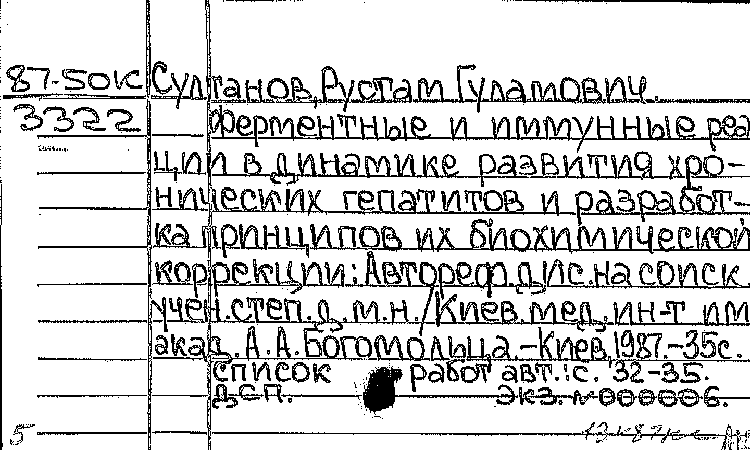 87-50К Султанов, Рустам Гуламович.
3322 Ферментные и иммунные реа
ции в динамике развития хро-
нических гепатитов и разработ-
ка принципов их биохимической
коррекции: Автореф. дис. на соиск.
учен. степ. д.м.н. / Киев. мед. ин-т им
акад. А.А. Богомольца. - Киев, 1987. - 35с.
список работ авт.: с. 32-35.
ДСП. экз. №000006.
5